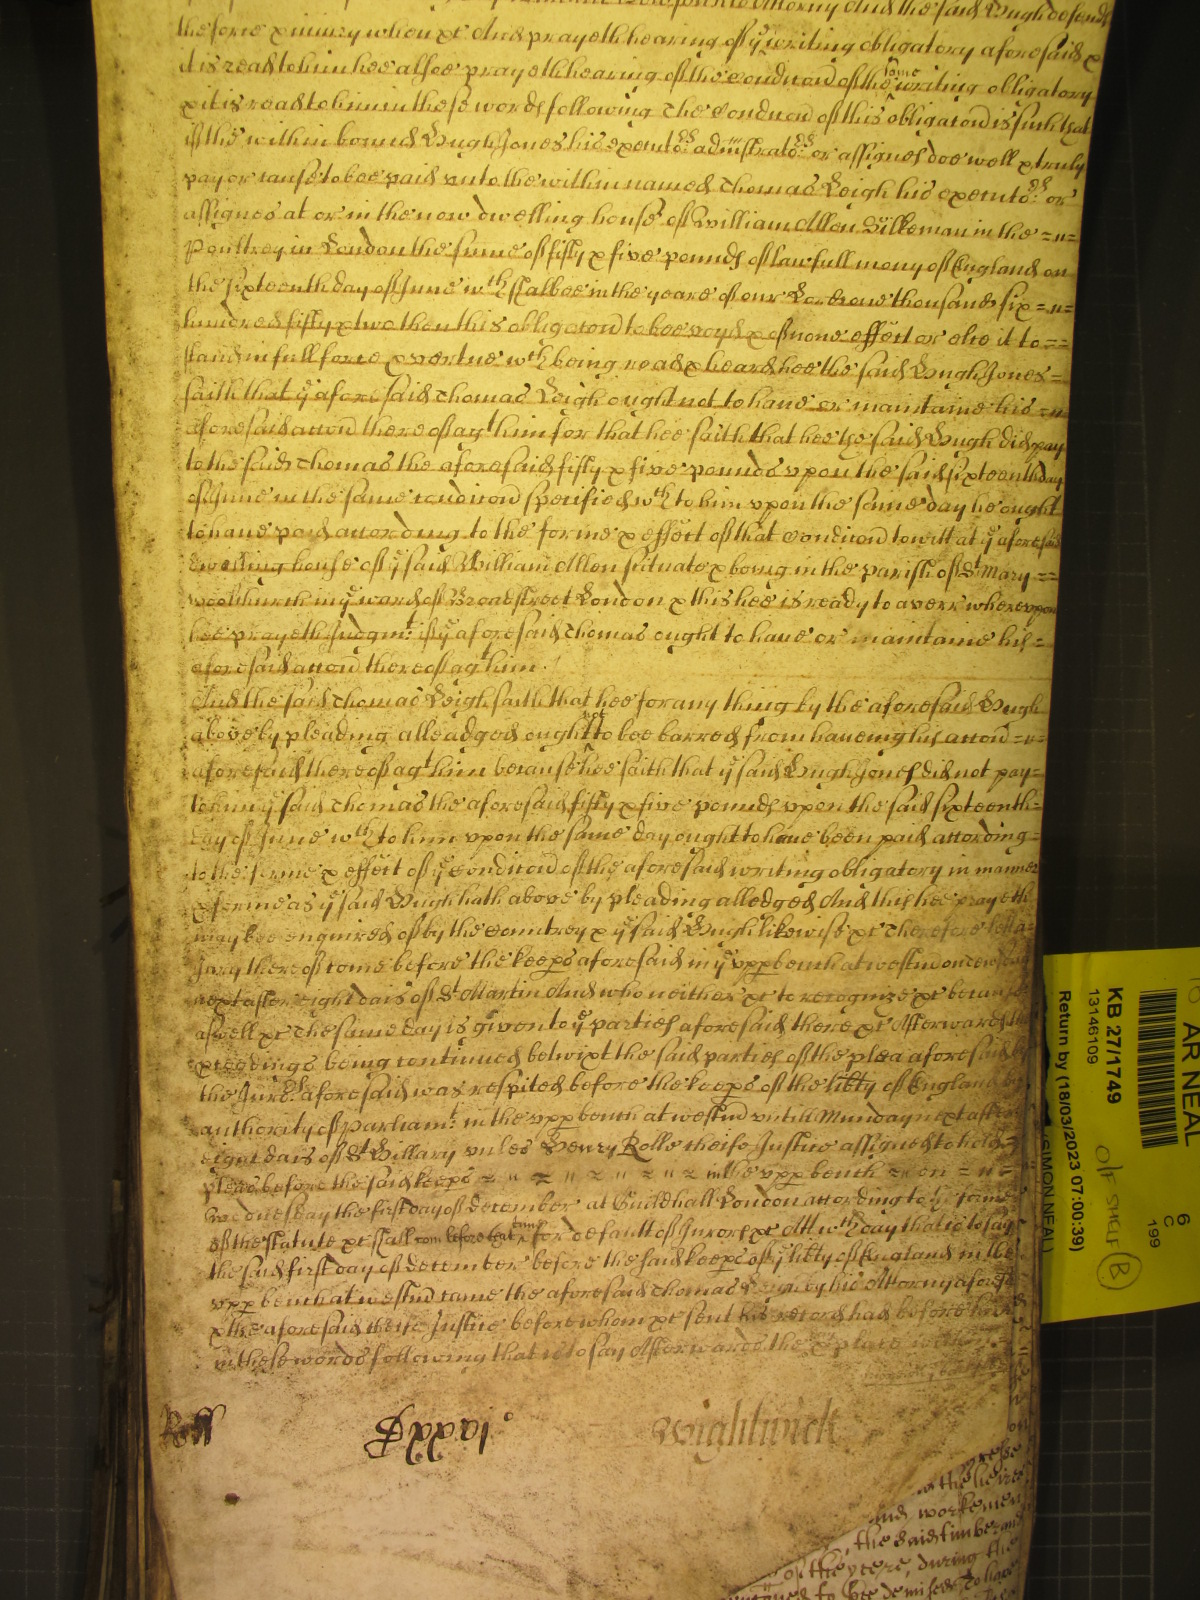 Attorny And the said Hugh defends
the force & iniury when &c And prayeth hearing of ye writing obligatory aforesaid &
it is read to him hee alsoe prayeth hearing of the Condicion of the same writing obligatory
& it is read to him in these words following The Condicion of this obligacion is such that
if the within bound Hugh Jones his executors administrators or assignes doe well & truly
pay or cause to bee paid unto the within named Thomas Leigh his executors or
assignes at or in the now dwelling house of William Allen Silkeman in the
Poultrey in London the sume of fifty & five pounds of lawfull mony of England on
the sixteenth day of June wch shalbee in the yeare of our Lord one thousand six
hundred fifty & two then this obligacion to bee voyd & of none effect or else it to
stand in full force & vertue wch being read & heard hee the said Hugh Jones
saith that ye aforesaid Thomas Leigh ought not to have or maintaine his
aforesaid accion thereof agt him for that hee saith that hee the said Hugh did pay
to the said Thomas the aforesaid fifty & five pounds upon the said sixteenth day
of June in the same condicion specified wch to him upon the same day he ought
to have paid according to the forme & effect of that Condicion to witt at ye aforesaid
dwelling house of ye said William Allen scituate & being in the parish of St Mary
Woolchurch in ye ward of Broadstreet London & this hee is ready to averr whereupon
hee prayeth Judgmt if ye aforesaid Thomas ought to have or maintaine his
aforesaid accion thereof agt him.
And the said Thomas Leigh saith that hee for any thing by the aforesaid Hugh
above by pleading alleadged ought not to bee barred from haveing his accion
aforesaid thereof agt him because hee saith that ye said Hugh Jones did not pay
to him ye said Thomas the aforesaid fifty & five pounds upon the said sixteenth
day of June wch to him upon the same day ought to have been paid according
to the forme & effect of ye Condicion of the aforesaid writing obligatory in manner
& forme as ye said Hugh hath above by pleading alledged And this hee prayeth
may bee enquired of by the Countrey & ye said Hugh likewise &c Therefore lett a
Jury thereof come before the keeps aforesaid in ye upp bench at westmr on
next after eight dais of St Martin And who neither &c to recognize &c because
aswell &c The same day is given to ye parties aforesaid there &c Afterwards the
&ceedings being continued betwixt the said parties of the plea aforesaid by
the Jurd aforesaid was respited before the keeps of the libty of England by
authority of Parliamt in the upp bench at westmr untill Munday next after
eight dais of St Hillary unles Henry Rolle cheife Justice assigned to hold
pleas before the said keeps in the upp bench on
Wednesday the first day of December at Guildhall London according to ye forme
of the statute &c shall come before that time for default of Jurors &c Att wch day that is to say
the said first day of December before the said keeps of ye libty of England in the
upp bench at westmr came the aforesaid Thomas Leigh by his Attorny aforesd
& the aforesaid cheife Justice before whom &c sent his record had before him
in these words following that is to say Afterwards the day & place within
Roll
Cxxvi°
Wightwick
these
the heires
and workemen
the said timber and
of they cere, during the
to bee demised, to have
AR NEAL
KB 27/1749
13146109
Return by (18/03/2023 07:00:39)
(SIMON NEAL)
Off Shelf (B)
6
C
199